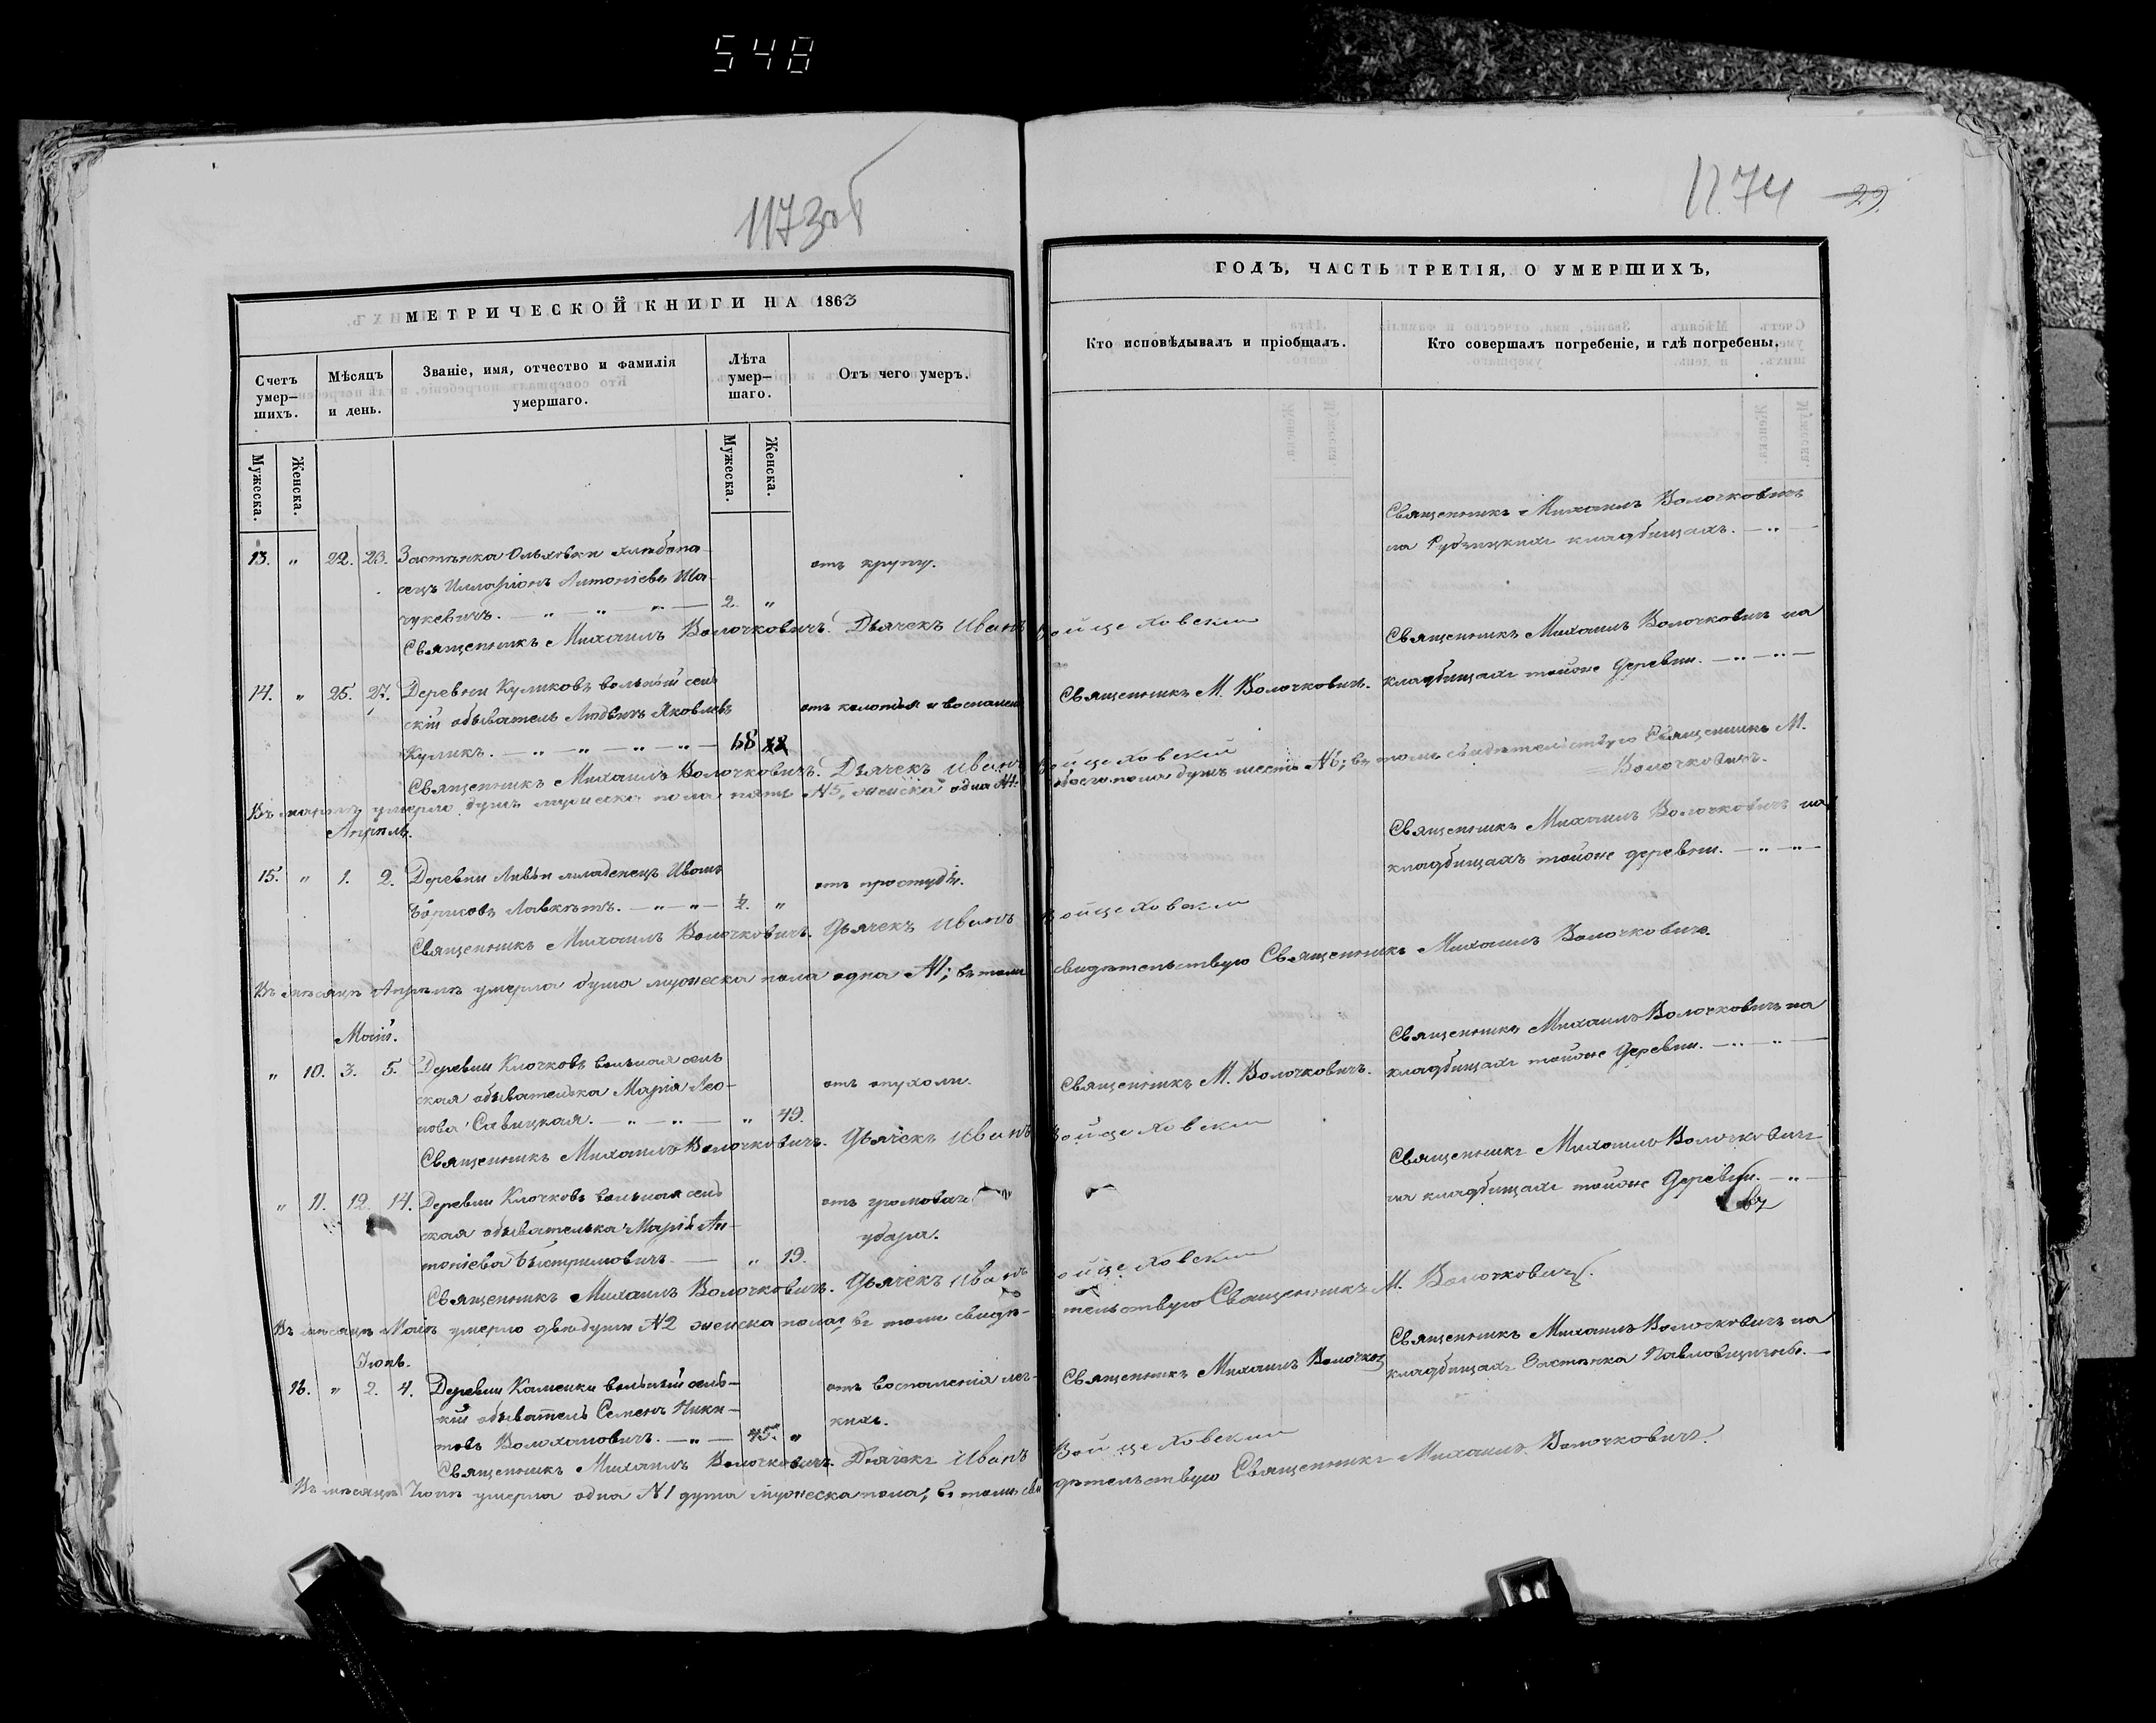 548
1173 об
1174 29.
МЕТРИЧЕСКОЙ КНИГИ НА 1863
ГОДЪ, ЧАСТЬ ТРЕТІЯ, О УМЕРШИХЪ,
Счетъ умер-шихъ.
Мужеска. Женска.
Мѣсяцъ и день.
Званіе, имя, отчество и фамилія умершаго.
Лѣта умер-шаго.
Мужеска. Женска.
Отъ чего умеръ.
Кто исповѣдывалъ и пріобщалъ.
Кто совершалъ погребеніе, и гдѣ погребены.
13. " 22. 23. Застѣнка Ольховки хлѣбопа-
шецъ Илларіонъ Антоніевъ Ша-
чукевичъ. — " — " — " — 2. "
отъ крупу.
Священникъ Михаилъ Волочковичъ
на кладбищахъ. — " —
Священникъ Михаилъ Волочковичъ. Дьячекъ Иванъ Войцеховскій
14. " 25. 27. Деревни Куликовъ вольный сель
скій обыватель Людвигъ Яковлевъ
Куликъ. — " — " — " — " — 68
отъ колотья и воспален
Священникъ М. Волочковичъ.
Священникъ Михаилъ Волочковичъ на
кладбищахъ тойже деревни. — " — " —
Священникъ Михаилъ Волочковичъ. Дьячекъ Иванъ Войцеховскій
Въ мартѣ умерло душъ мужеска пола пять №5, женска одна №1 обоего пола душъ шесть №6; въ томъ свидѣтельствую Священникъ М.
Волочковичъ.
Апрѣль.
15. " 1. 2. Деревни младенецъ Иванъ
отъ простуды.
Священникъ Михаилъ Волочковичъ на
кладбищахъ тойже деревни. — " — " —
Священникъ Михаилъ Волочковичъ. Дьячекъ Иванъ Войцеховскій
Въ мѣсяцѣ Апрѣлѣ умерла душа мужеска пола одна №1; въ томъ свидѣтельствую Священникъ Михаилъ Волочковичъ.
Маій.
" 10. 3. 5. Деревни Клочковъ вольная сель
ская обывателька Марія Лео-
нова Савицкая. — " — " — " 49.
отъ опухоли.
Священникъ М. Волочковичъ.
Священникъ Михаилъ Волочковичъ на
кладбищахъ тойже деревни. — " — " —
Священникъ Михаилъ Волочковичъ. Дьячекъ Иванъ Войцеховскій
" 11. 12. 14. Деревни Клочковъ вольная сель
ская обывателька Марія Ан-
тоніева Быстримовичъ. — " 19.
отъ громоваго
удара.
Священникъ Михаилъ Волочковичъ
на кладбищахъ тойже деревни. — " —
Священникъ Михаилъ Волочковичъ. Дьячекъ Иванъ Войцеховскій
Въ мѣсяцѣ Маіѣ умерло двѣ души №2 женска пола; въ томъ свидѣ-тельствую Священникъ М. Волочковичъ.
Іюнь.
16. " 2. 4. Деревни Каменки вольный сель-
кій обыватель Семенъ Ники-
товъ Волохановичъ. — " — 45. "
отъ воспаленія лег-
кихъ.
Священникъ Михаилъ Волочков
Священникъ Михаилъ Волочковичъ на
кладбищахъ Застѣнка Павловщизны. —
Священникъ Михаилъ Волочковичъ. Дьячекъ Иванъ Войцеховскій
Въ мѣсяцѣ Іюнѣ умерла одна №1 душа мужеска пола; въ томъ сви дѣтельствую Священникъ Михаилъ Волочковичъ.